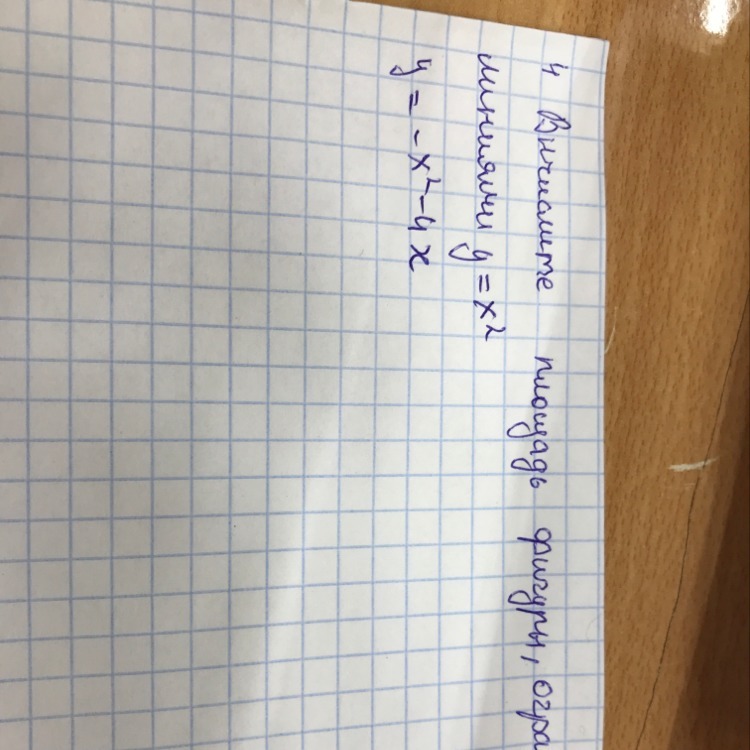 4 Вычислите площадь фигуры, огра
линиями y = x²
y = -x² - 4x